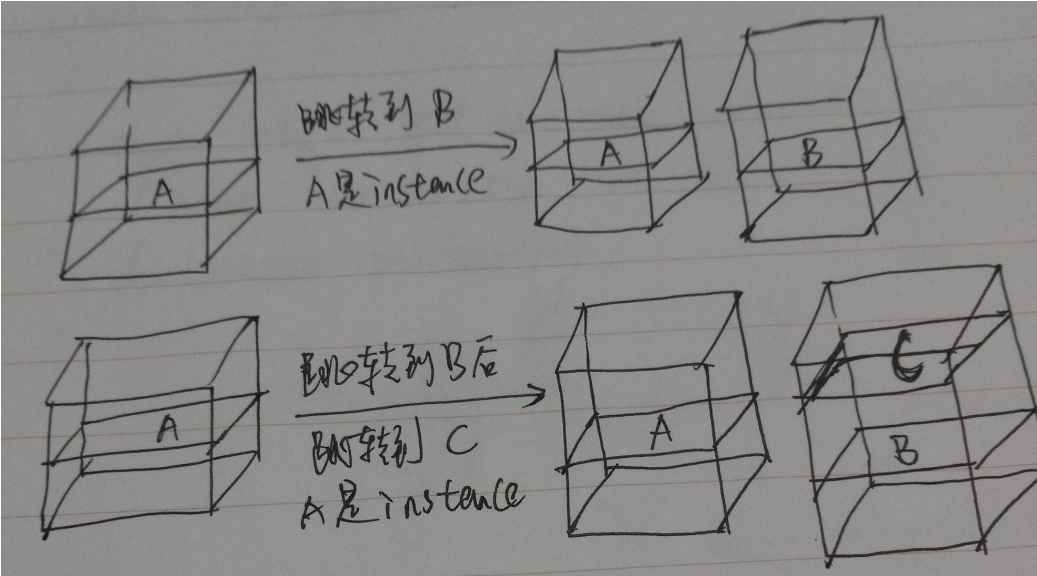 A
跳转到 B
A是instance
A
B
A
跳转到B后
跳转到 C
A是instance
A
C
B